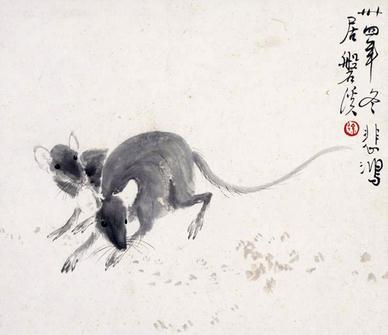 卅四年冬
居磐溪
悲鴻